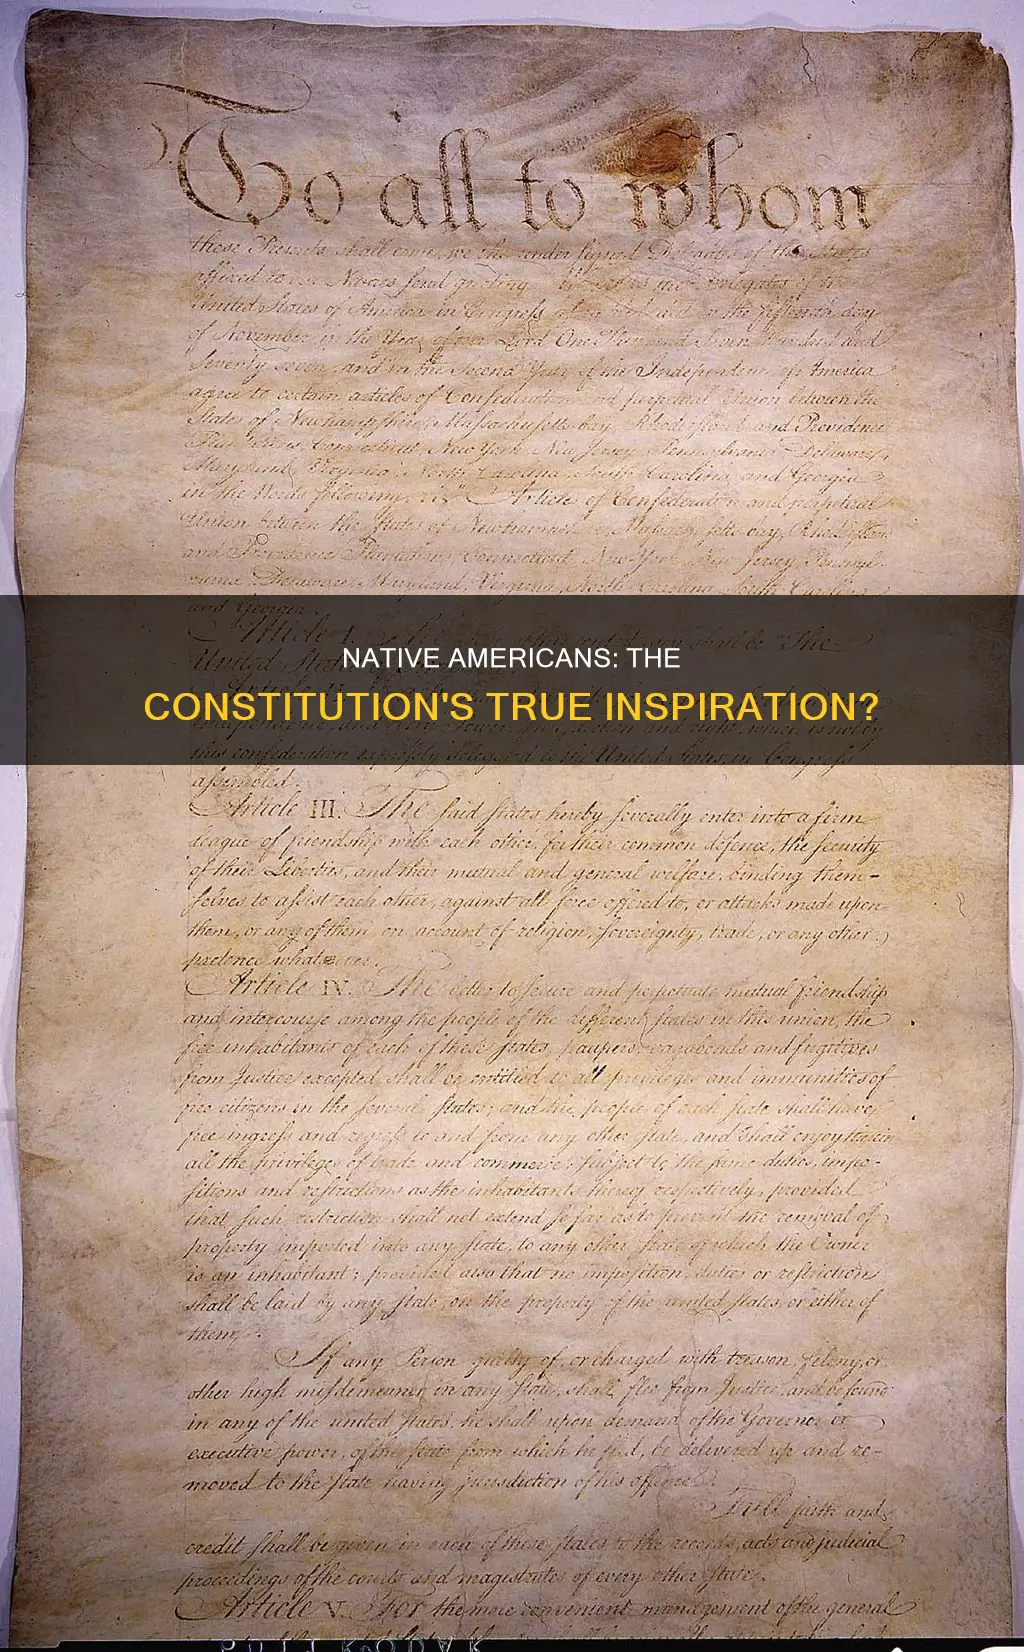 To all to whom
these Presents shall come, we the under signed Delegates of the States
affixed to our Names send greeting. Whereas the Delegates of the
United States of America in Congress assembled did on the fifteenth day
of November in the Year of our Lord One Thousand Seven Hundred and
Seventy seven, and in the Second Year of the Independence of America
agree to certain articles of Confederation and perpetual Union between the
States of Newhampshire, Massachusetts-bay, Rhodeisland and Providence
Plantations, Connecticut, New York, New Jersey, Pennsylvania, Delaware,
Maryland, Virginia, North Carolina, South Carolina, and Georgia
in the Words following, viz. Articles of Confederation and perpetual
Union between the States of Newhampshire, Massachusetts-bay, Rhodeisland
and Providence Plantations, Connecticut, New York, New Jersey, Pennsyl-
vania, Delaware, Maryland, Virginia, North Carolina, South Carolina
and Georgia.
Article I. shall be "The
United States
NATIVE AMERICANS: THE
CONSTITUTION'S TRUE INSPIRATION?
and right, which is not by
this confederation expressly delegated to the United States, in Congress
assembled.
Article III. The said states hereby severally enter into a firm
league of friendship with each other, for their common defence, the security
of their Liberties, and their mutual and general welfare, binding them-
selves to assist each other, against all force offered to, or attacks made upon
them, or any of them, on account of religion, sovereignty, trade, or any other
pretence whatever.
Article IV. The better to secure and perpetuate mutual friendship
and intercourse among the people of the different states in this union, the
free inhabitants of each of these states, paupers, vagabonds and fugitives
from Justice excepted, shall be entitled to all privileges and immunities of
free citizens in the several states; and the people of each state shall have
free ingress and regress to and from any other state, and shall enjoy therein
all the privileges of trade and commerce, subject to the same duties, impo-
sitions and restrictions as the inhabitants thereof respectively, provided
that such restriction shall not extend so far as to prevent the removal of
property imported into any state, to any other state of which the Owner
is an inhabitant; provided also that no imposition, duties or restriction
shall be laid by any state, on the property of the united states, or either of
them.
If any Person guilty of, or charged with treason, felony, or
other high misdemeanor in any state, shall flee from Justice, and be found
in any of the united states, he shall upon demand of the Governor or
executive power, of the state from which he fled, be delivered up and re-
moved to the state having jurisdiction of his offence.
Full faith and
credit shall be given in each of these states to the records, acts and judicial
proceedings of the courts and magistrates of every other state.
Article V. For the more convenient management of the general